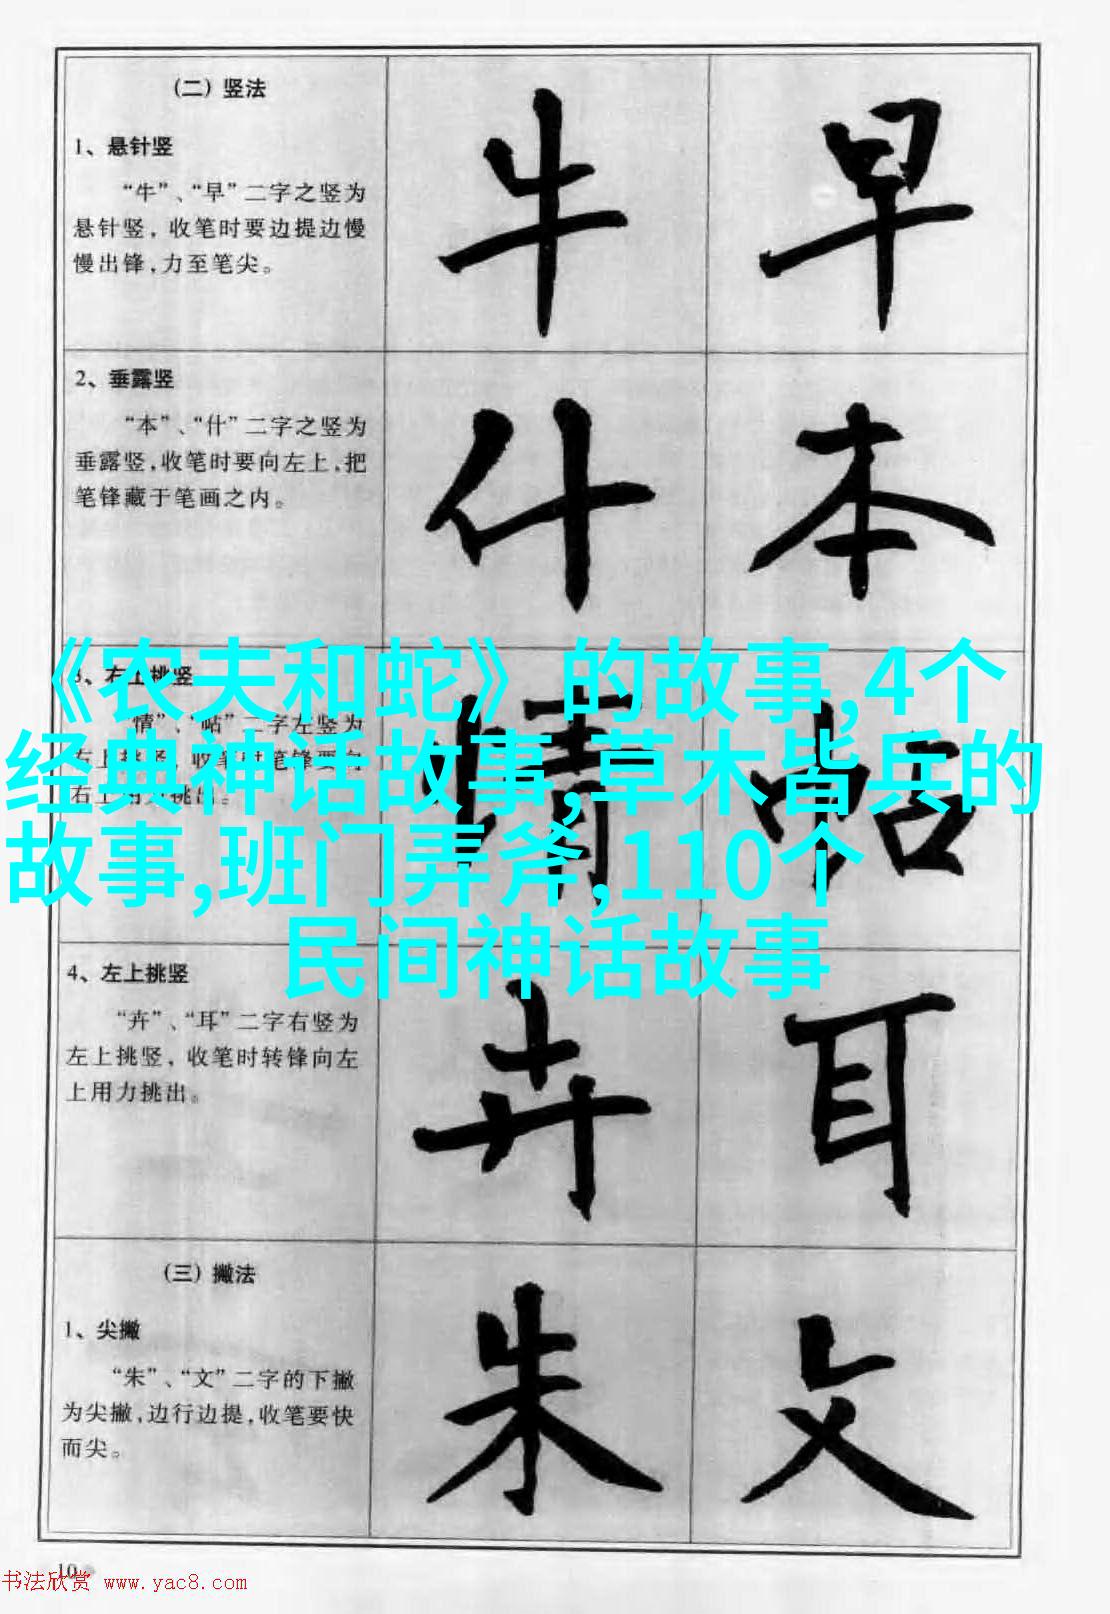 (二) 竖法
1、悬针竖
“牛”、“早”二字之竖为
悬针竖, 收笔时要边提边慢
慢出锋,力至笔尖。
牛 早
2、垂露竖
“本”、“什”二字之竖为
垂露竖,收笔时要向左上,把
笔锋藏于笔画之内。
什 本
3、右上挑竖
“情”、“帖”二字左竖为
情 帖
《农夫和蛇》的故事,4个
经典神话故事,草木皆兵的
故事,班门弄斧,110个
民间神话故事
4、左上挑竖
“卉”、“耳”二字右竖为
左上挑竖, 收笔时转锋向左
上用力挑出。
卉 耳
(三) 撇法
1、尖撇
“朱”、“文”二字的下撇
为尖撇,边行边提,收笔要快
而尖。
朱 文
10
书法欣赏 www.yac8.com